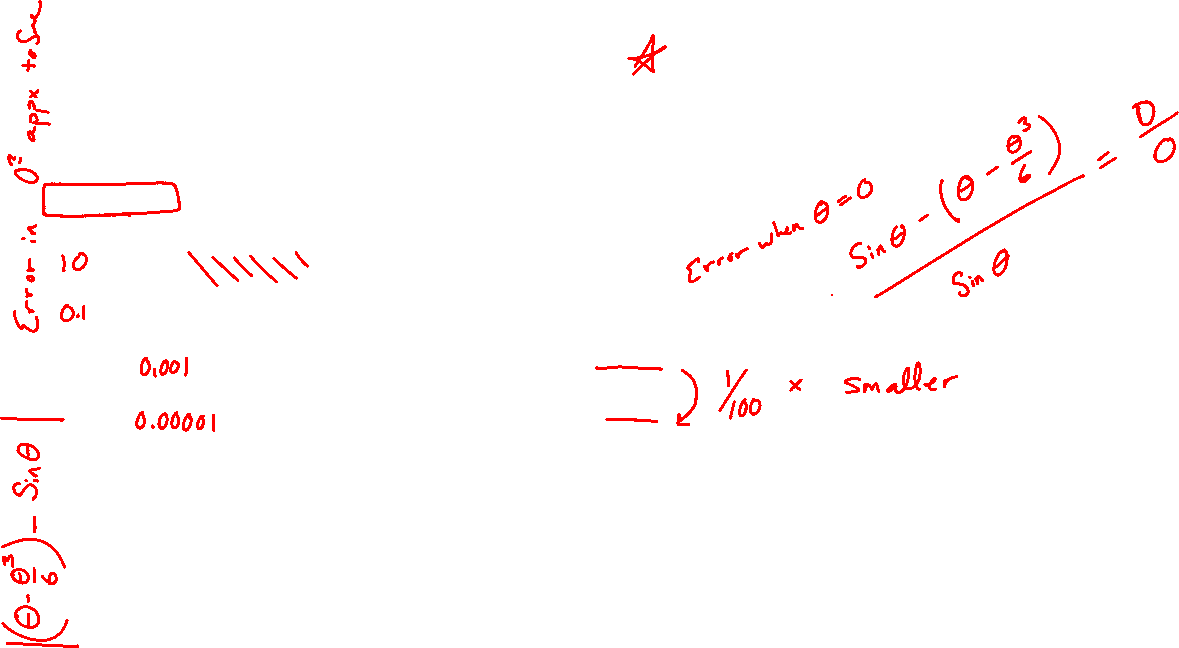 Error in θ² appx to Sine
10
0.1
0.001
0.00001
|(θ - θ³/6) - Sin θ|
Error when θ = 0
Sin θ - (θ - θ³/6) / Sin θ = 0/0
1/100 × smaller